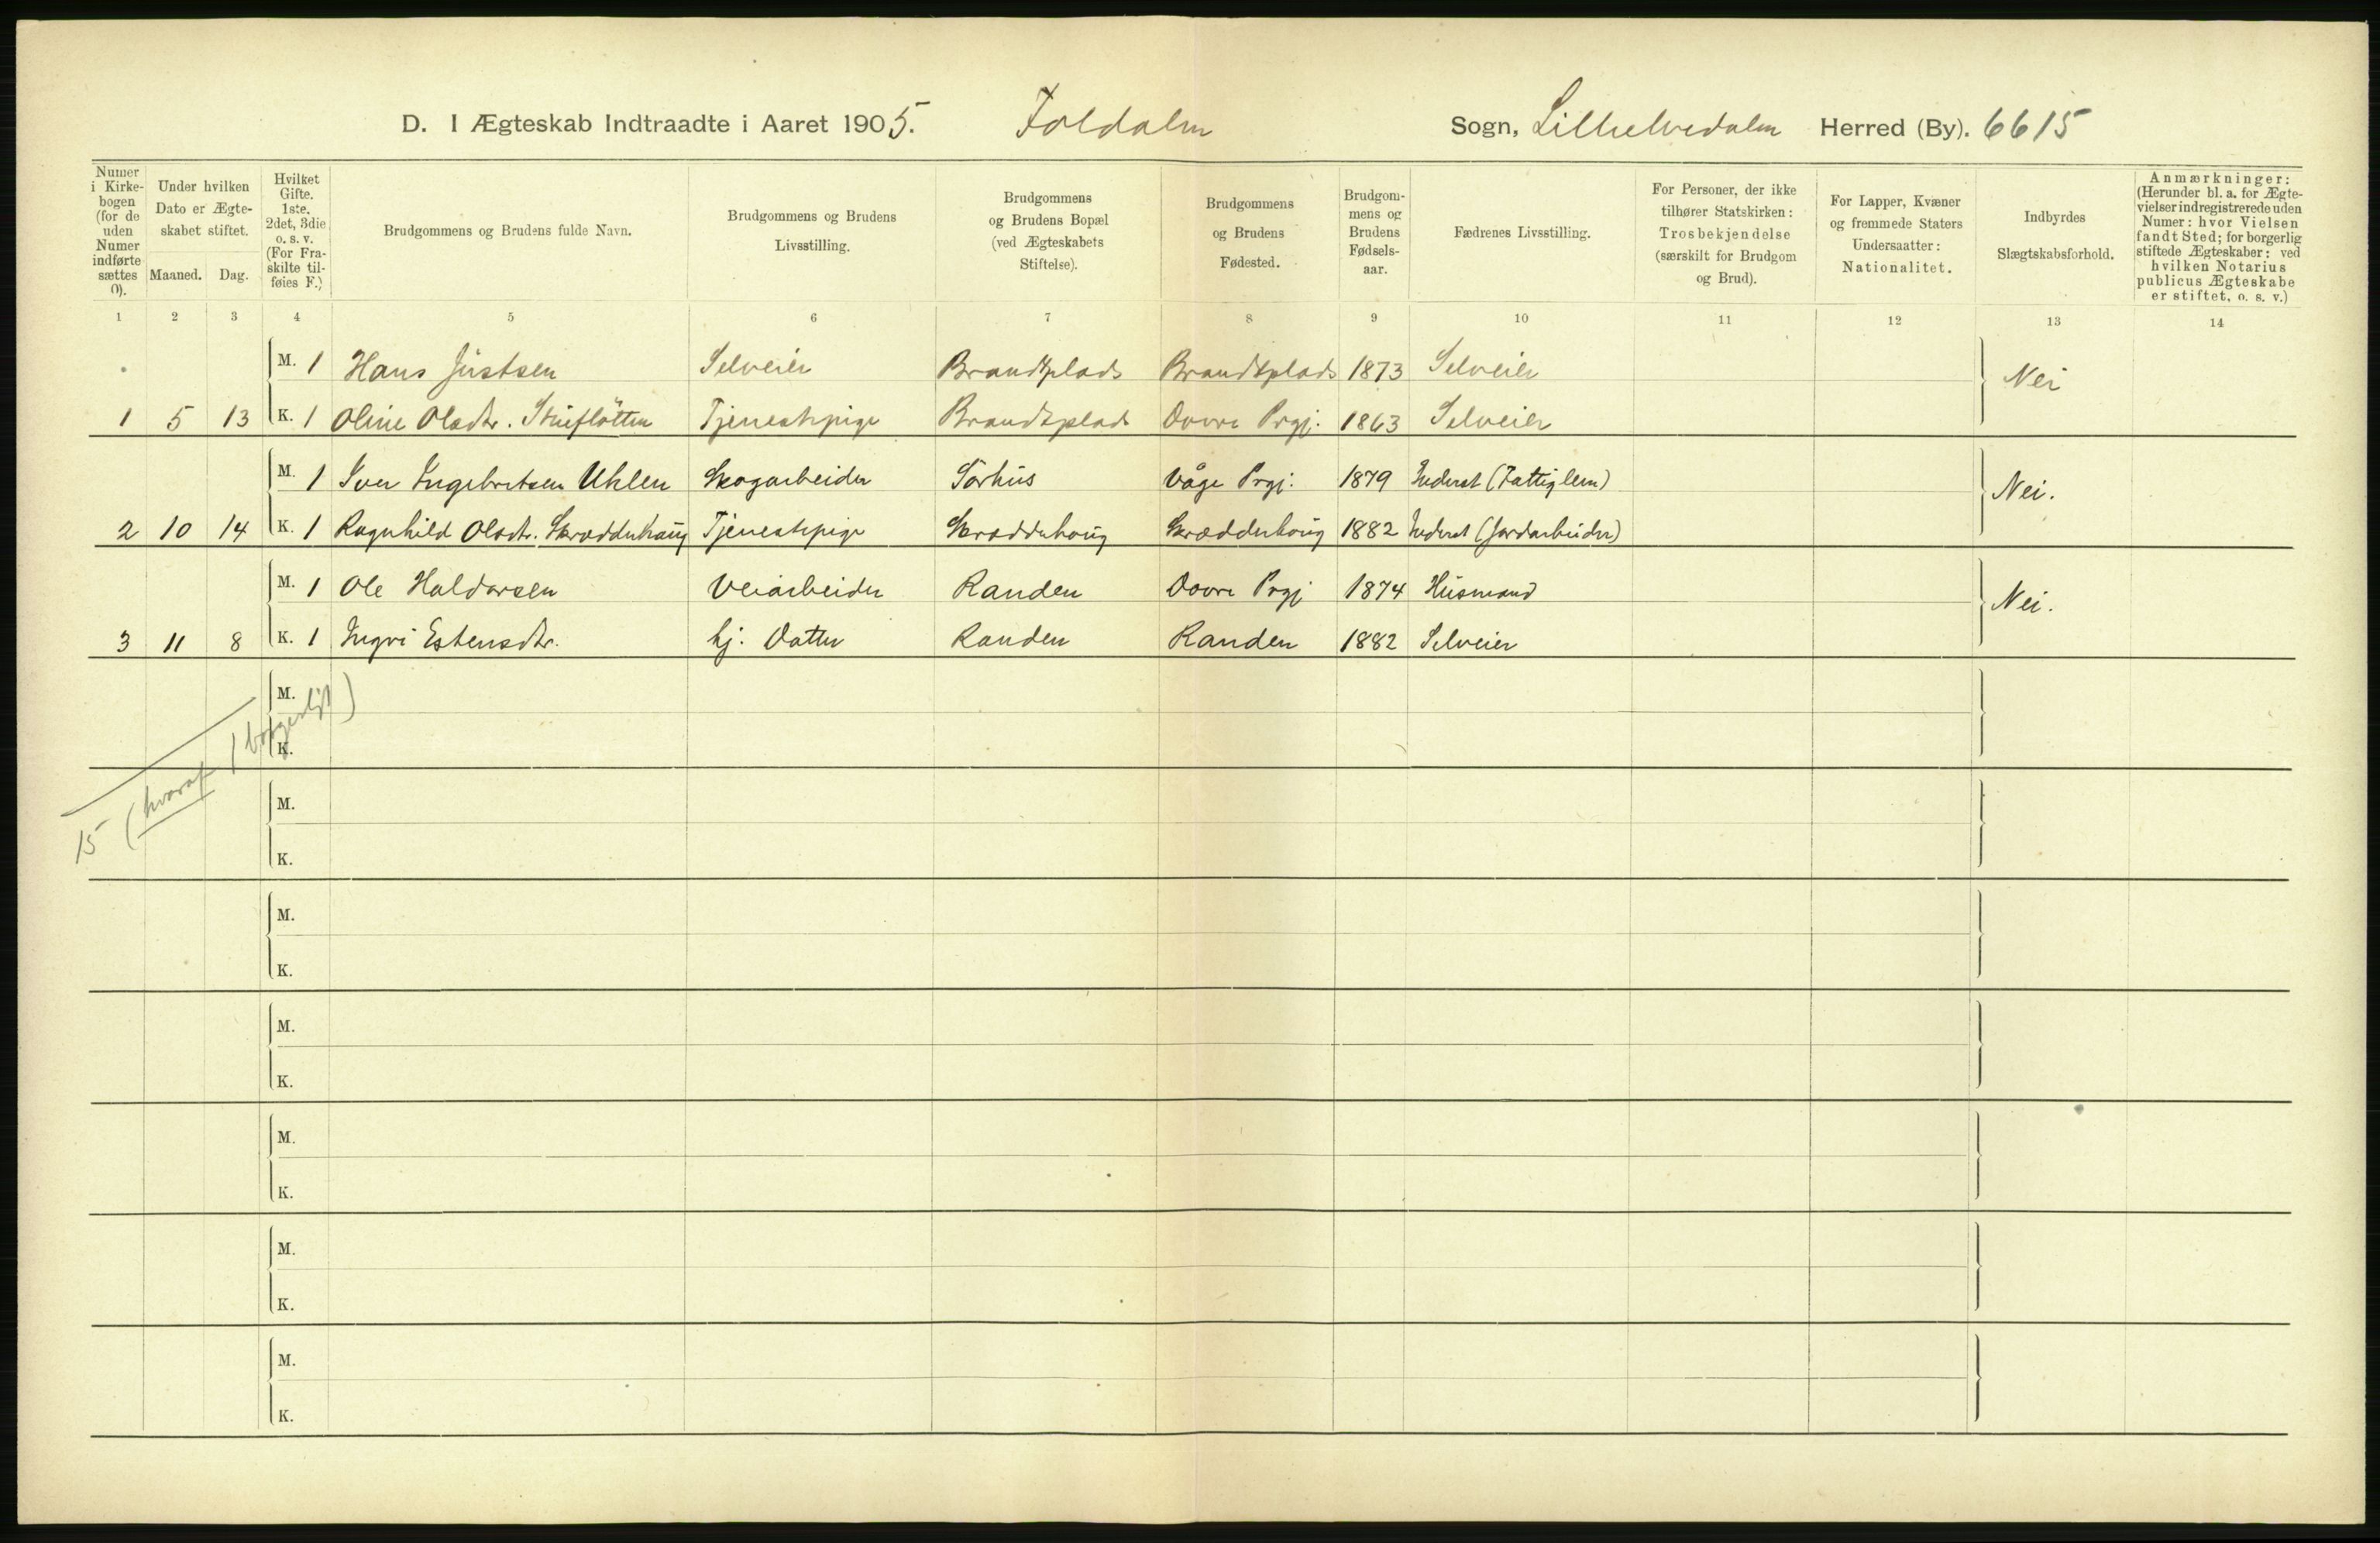 D. I Ægteskab Indtraadte i Aaret 1905. Foldalen Sogn, Lilleelvedalen Herred (By). 6615
Numer i Kirkebogen (for de uden Numer indførte sættes 0).
Under hvilken Dato er Ægteskabet stiftet.
Maaned. Dag.
Hvilket Gifte. 1ste, 2det, 3die o. s. v. (For Fraskilte tilføies F.)
Brudgommens og Brudens fulde Navn.
Brudgommens og Brudens Livsstilling.
Brudgommens og Brudens Bopæl (ved Ægteskabets Stiftelse).
Brudgommens og Brudens Fødested.
Brudgommens og Brudens Fødselsaar.
Fædrenes Livsstilling.
For Personer, der ikke tilhører Statskirken: Trosbekjendelse (særskilt for Brudgom og Brud).
For Lapper, Kvæner og fremmede Staters Undersaatter: Nationalitet.
Indbyrdes Slægtskabsforhold.
Anmærkninger: (Herunder bl. a. for Ægtevielser indregistrerede uden Numer: hvor Vielsen fandt Sted; for borgerlig stiftede Ægteskaber: ved hvilken Notarius publicus Ægteskabe er stiftet, o. s. v.)
1 2 3 4 5 6 7 8 9 10 11 12 13 14
M. 1 Hans Justsen Selveier Brandtplads Brandtplads 1873 Selveier Nei
1 5 13 K. 1 Oline Olsdtr. Tjenestepige Brandtplads Dovre Prgj. 1863 Selveier
M. 1 Iver Ingebretsen Uhlen Skogarbeider Sørhus Våge Prgj. 1879 Inderst (Fattiglem) Nei.
2 10 14 K. 1 Ragnhild Olsdtr. Skrædderhaug Tjenestepige Skrædderhaug Skrædderhaug 1882 Inderst (Jordarbeider)
M. 1 Ole Haldorsen Veiarbeider Randen Dovre Prgj 1874 Husmand Nei.
3 11 8 K. 1 Ingri Estensdtr. hj. Datter Randen Randen 1882 Selveier
M.
K.
15 (hvoraf 1 borgerligt)
M.
K.
M.
K.
M.
K.
M.
K.
M.
K.
M.
K.